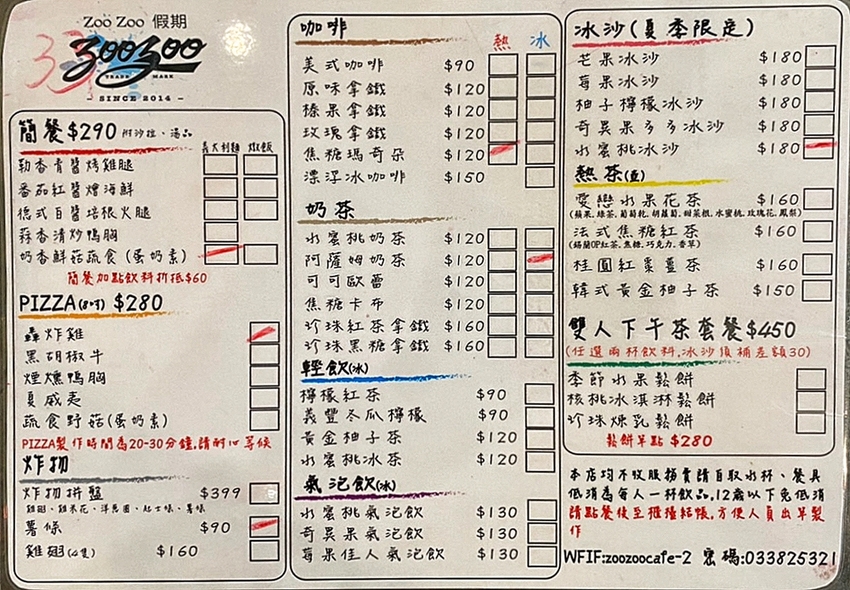 Zoo Zoo 假期
33
zoozoo
TRADE MARK
- SINCE 2014 -
簡餐$290 附沙拉、湯品
義大利麵 燉飯
勒香青醬烤雞腿
番茄紅醬燴海鮮
德式白醬培根火腿
蒜香清炒鴨胸
奶香鮮菇蔬食(蛋奶素)
簡餐加點飲料折抵$60
PIZZA(8吋) $280
轟炸雞
黑胡椒牛
煙燻鴨胸
夏威夷
蔬食野菇(蛋奶素)
PIZZA製作時間為20-30分鐘,請耐心等候
炸物
炸物拼盤 $399
雞翅、雞米花、洋蔥圈、起士條、薯條
薯條 $90
雞翅(4隻) $160
咖啡
熱 冰
美式咖啡 $90
原味拿鐵 $120
榛果拿鐵 $120
玫瑰拿鐵 $120
焦糖瑪奇朵 $120
漂浮冰咖啡 $150
奶茶
水蜜桃奶茶 $120
阿薩姆奶茶 $120
可可歐蕾 $120
焦糖卡布 $120
珍珠紅茶拿鐵 $160
珍珠黑糖拿鐵 $160
輕飲(冰)
檸檬紅茶 $90
義豐冬瓜檸檬 $90
黃金柚子茶 $120
水蜜桃冰茶 $120
氣泡飲(冰)
水蜜桃氣泡飲 $130
奇異果氣泡飲 $130
莓果佳人氣泡飲 $130
冰沙(夏季限定)
芒果冰沙 $180
莓果冰沙 $180
柚子檸檬冰沙 $180
奇異果多多冰沙 $180
水蜜桃冰沙 $180
熱茶(壺)
愛戀水果花茶 $160
(蘋果、綠茶、葡萄乾、胡蘿蔔、甜菜根、水蜜桃、玫瑰花、鳳梨)
法式焦糖紅茶 $160
(錫蘭OP紅茶、焦糖、巧克力、香草)
桂圓紅棗薑茶 $160
韓式黃金柚子茶 $150
雙人下午茶套餐$450
(任選兩杯飲料,冰沙須補差額30)
季節水果鬆餅
核桃冰淇淋鬆餅
珍珠煉乳鬆餅
鬆餅單點 $280
本店均不收服務費請自取水杯、餐具
低消為每人一杯飲品,12歲以下免低消
請點餐後至櫃檯結帳,方便人員出單製
作
WFIF:zoozoocafe-2 密碼:033825321